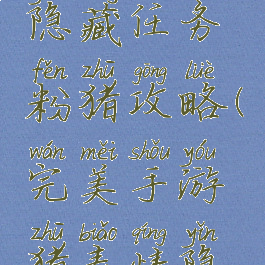 隐藏任务
fěn zhū gōng lüè
粉猪攻略(
wán měi shǒu yóu
完美手游
zhū biǎo qíng yǐn
猪表情隐